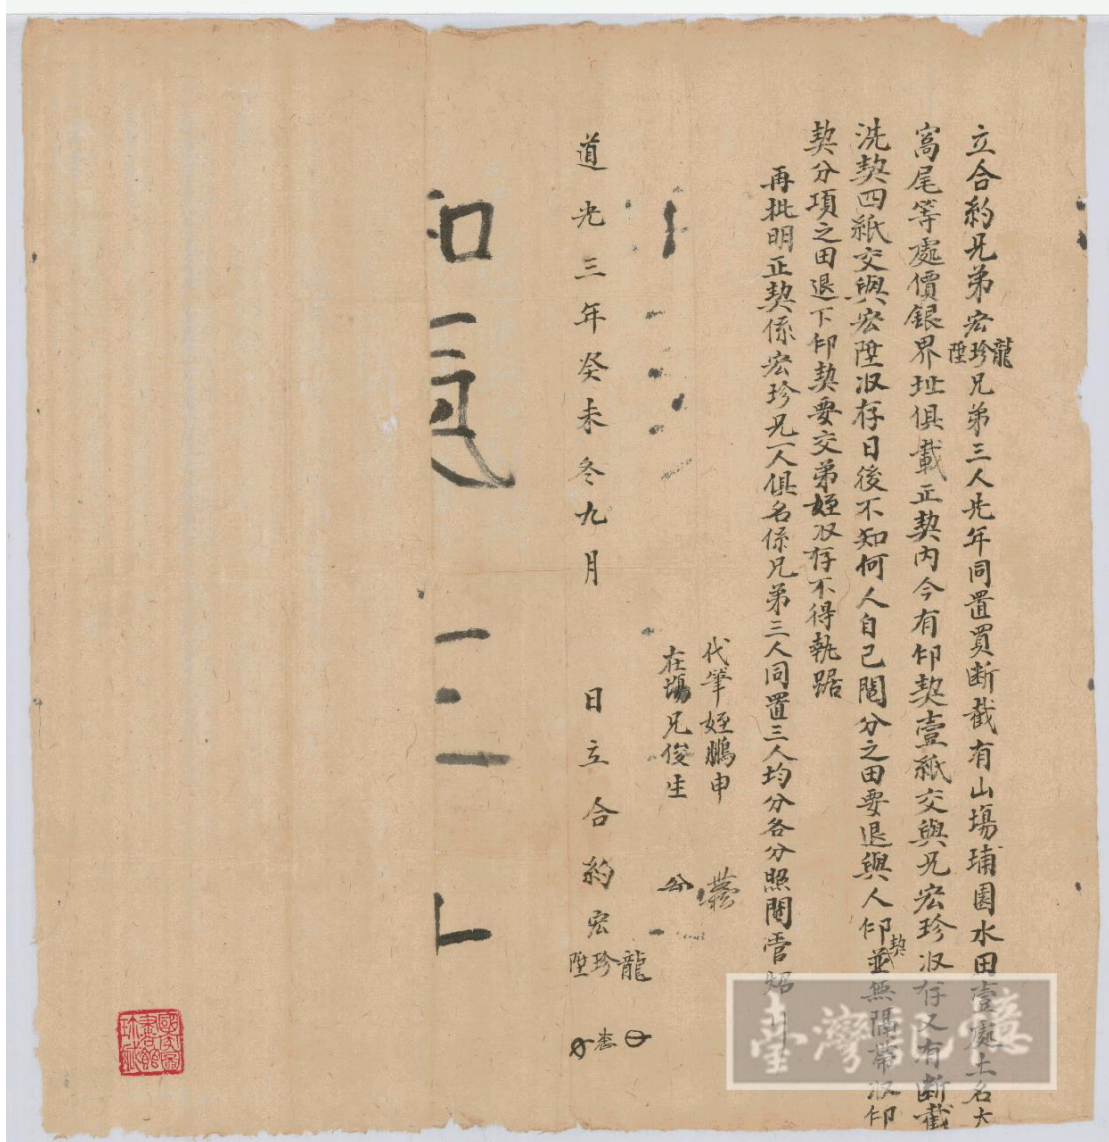 立合約兄弟宏龍珍陞兄弟三人先年同置買斷截有山塲埔園水田壹處土名大
窩尾等處價銀界址俱載正契內今有印契壹紙交與兄宏珍收存又有斷截
洗契四紙交與宏陞收存日後不知何人自己鬮分之田要退與人印契並無隔帶收印
契分項之田退下印契要交弟姪收存不得執踞
再批明正契係宏珍兄一人俱名係兄弟三人同置三人均分各分照鬮管
代筆姪鵬申
在塲兄俊生
和氣
道光三年癸未冬九月 日立合約宏龍珍陞
國家圖書館珍藏
臺灣記憶